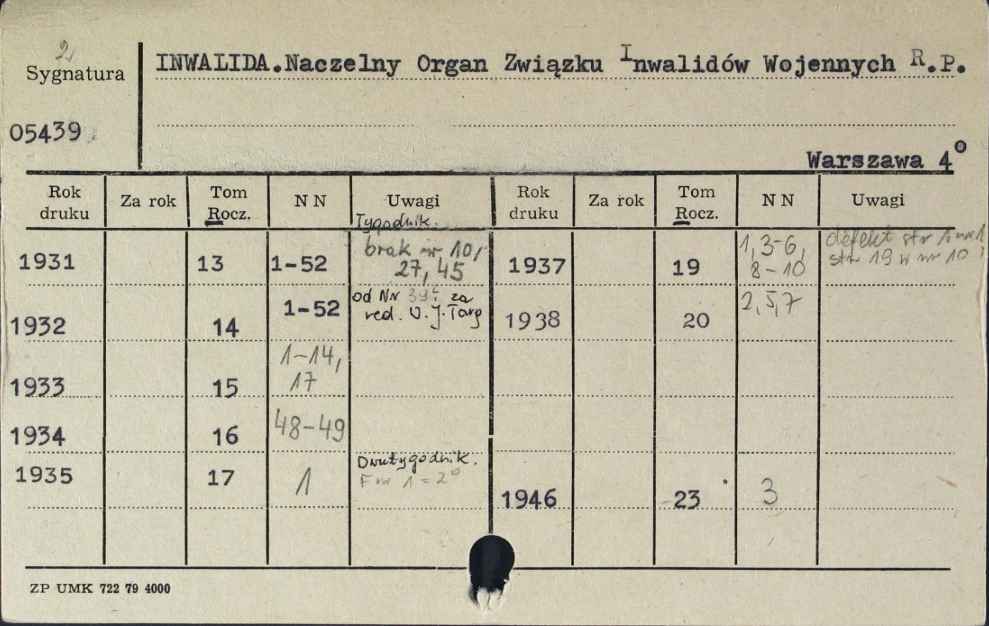 2
Sygnatura
INWALIDA.Naczelny Organ Związku Inwalidów Wojennych R.P.
05439
Warszawa 4°
Rok druku Za rok Tom Rocz. N N Uwagi Rok druku Za rok Tom Rocz. N N Uwagi
Tygodnik.
1931 13 1-52 brak nr 10, 27, 45
1937 19 1, 3-6, 8-10 defekt str 19 w nr 10
1932 14 1-52 od Nr za red. J. Targ
1938 20 2, 5, 7
1933 15 1-14, 17
1934 16 48-49
1935 17 1 Dwutygodnik. F nr 1 = 2°
1946 23 3
ZP UMK 722 79 4000